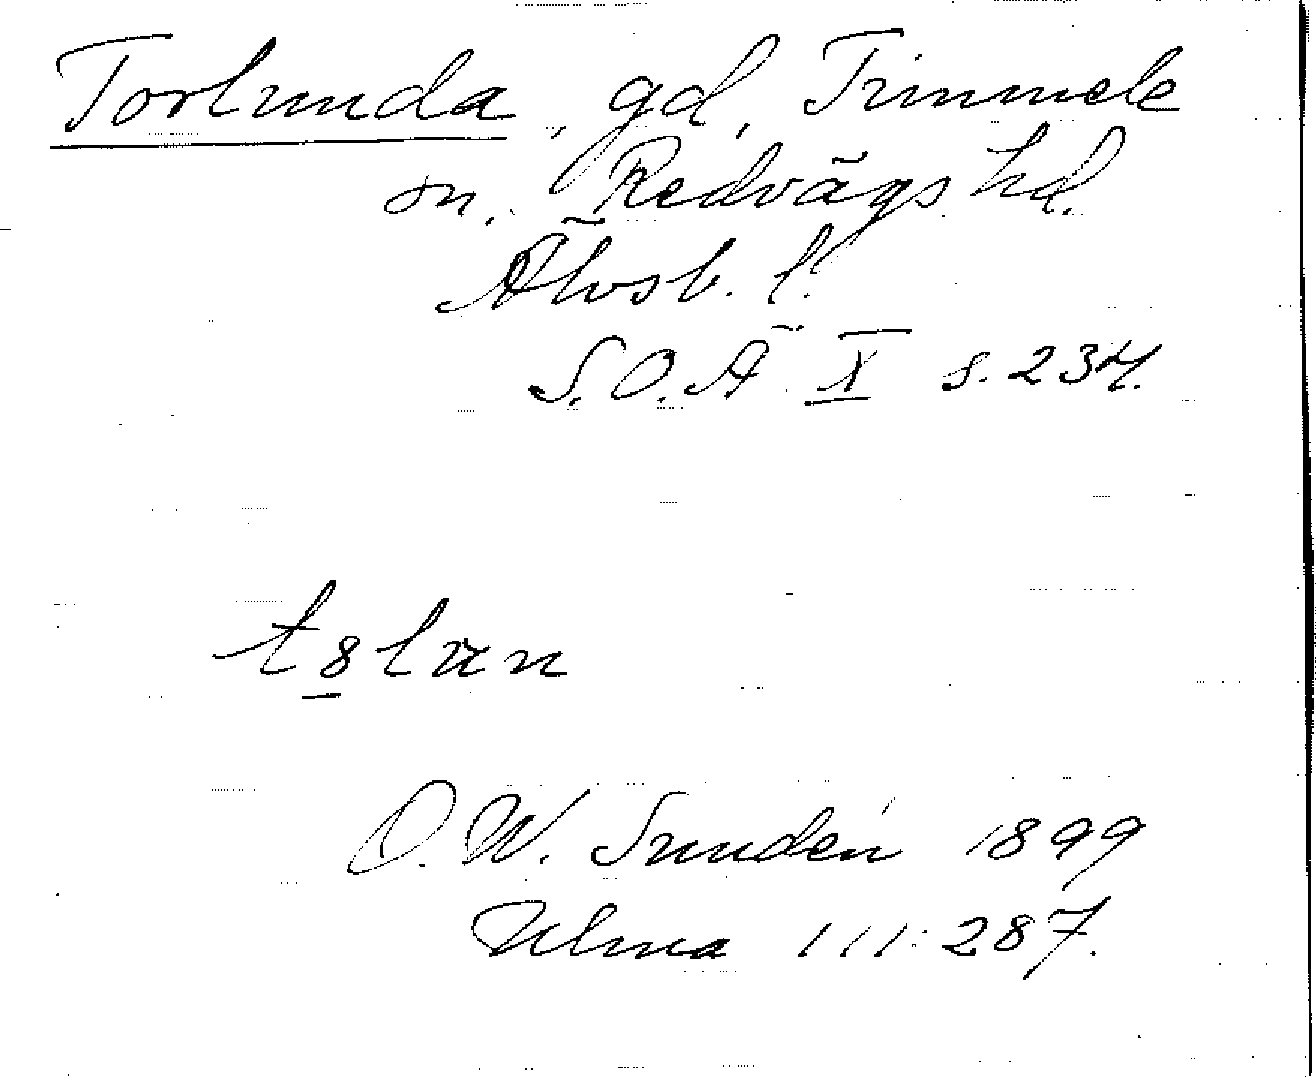 Torlunda, gd, Timmele
sn. Redvägs hd.
Älvsb. l.
S.O.Ä X s. 237.
O.W. Sundén 1899
Ulma 111:287.